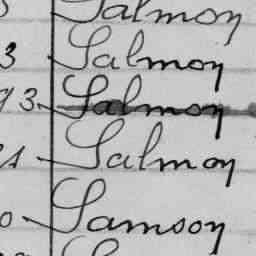 Salmon
3 Salmon
93 Salmon
Salmon
Samson